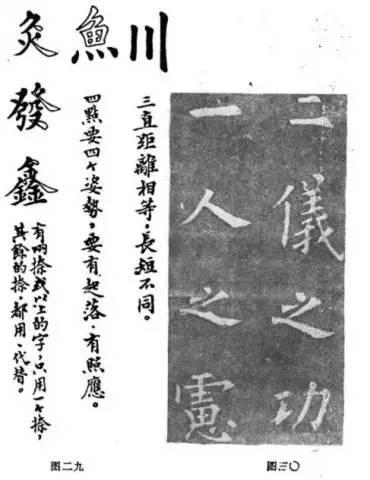 二儀之功
一人之慮
图三〇
川
三直距離相等，長短不同。
魚
四點要四个姿勢，要有起落、有照應。
灸
發
鑫
有兩捺或以上的字，只用一个捺，
其餘的捺，都用、代替。
图二九